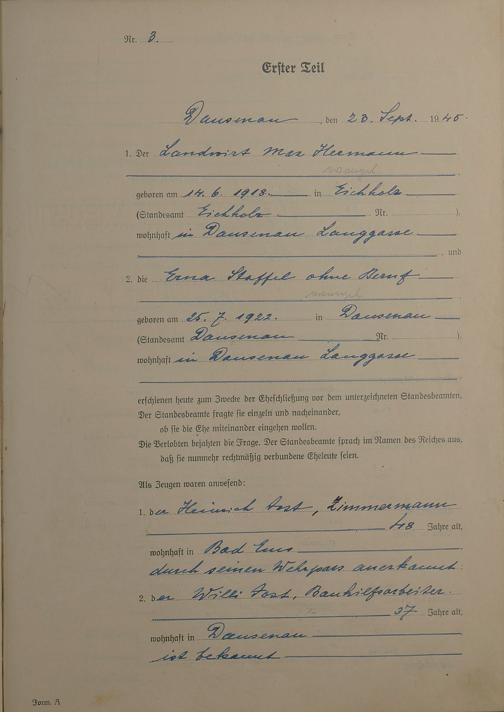 Nr. 3.
Erster Teil
Dausenau, den 23. Sept. 1945.
1. Der Landwirt Max Hermann
geboren am 14.6.1918. in Eichholz
(Standesamt Eichholz Nr. ).
wohnhaft in Dausenau Langgasse
, und
2. die Erna Stoffel ohne Beruf
geboren am 25.7.1922. in Dausenau
(Standesamt Dausenau Nr. ).
wohnhaft in Dausenau Langgasse
erschienen heute zum Zwecke der Eheschließung vor dem unterzeichneten Standesbeamten.
Der Standesbeamte fragte sie einzeln und nacheinander,
ob sie die Ehe miteinander eingehen wollen.
Die Verlobten bejahten die Frage. Der Standesbeamte sprach im Namen des Reiches aus,
daß sie nunmehr rechtmäßig verbundene Eheleute seien.
Als Zeugen waren anwesend:
1. der Heinrich, Zimmermann
48 Jahre alt,
wohnhaft in Bad Ems
durch seinen Wehrpass anerkannt.
2. der Willi, Bauhilfsarbeiter.
37 Jahre alt,
wohnhaft in Dausenau
ist bekannt
Form. A